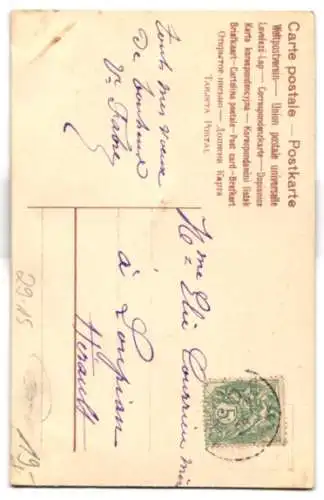 Carte postale — Postkarte
Weltpostverein — Union postale universelle
Levelezö-Lap — Correspondenzkarte — Dopisnice
Karta korespondencyjna — Korespondencni listek
Briefkaart — Cartolina postale — Post card — Brefkort
Открытое письмо — Дописна Карта
TARJETA POSTAL
Tous mes voeux
de bonheur
Vve Fabre
Mme Elie
à Loupian
Hérault
5
29.15
119.